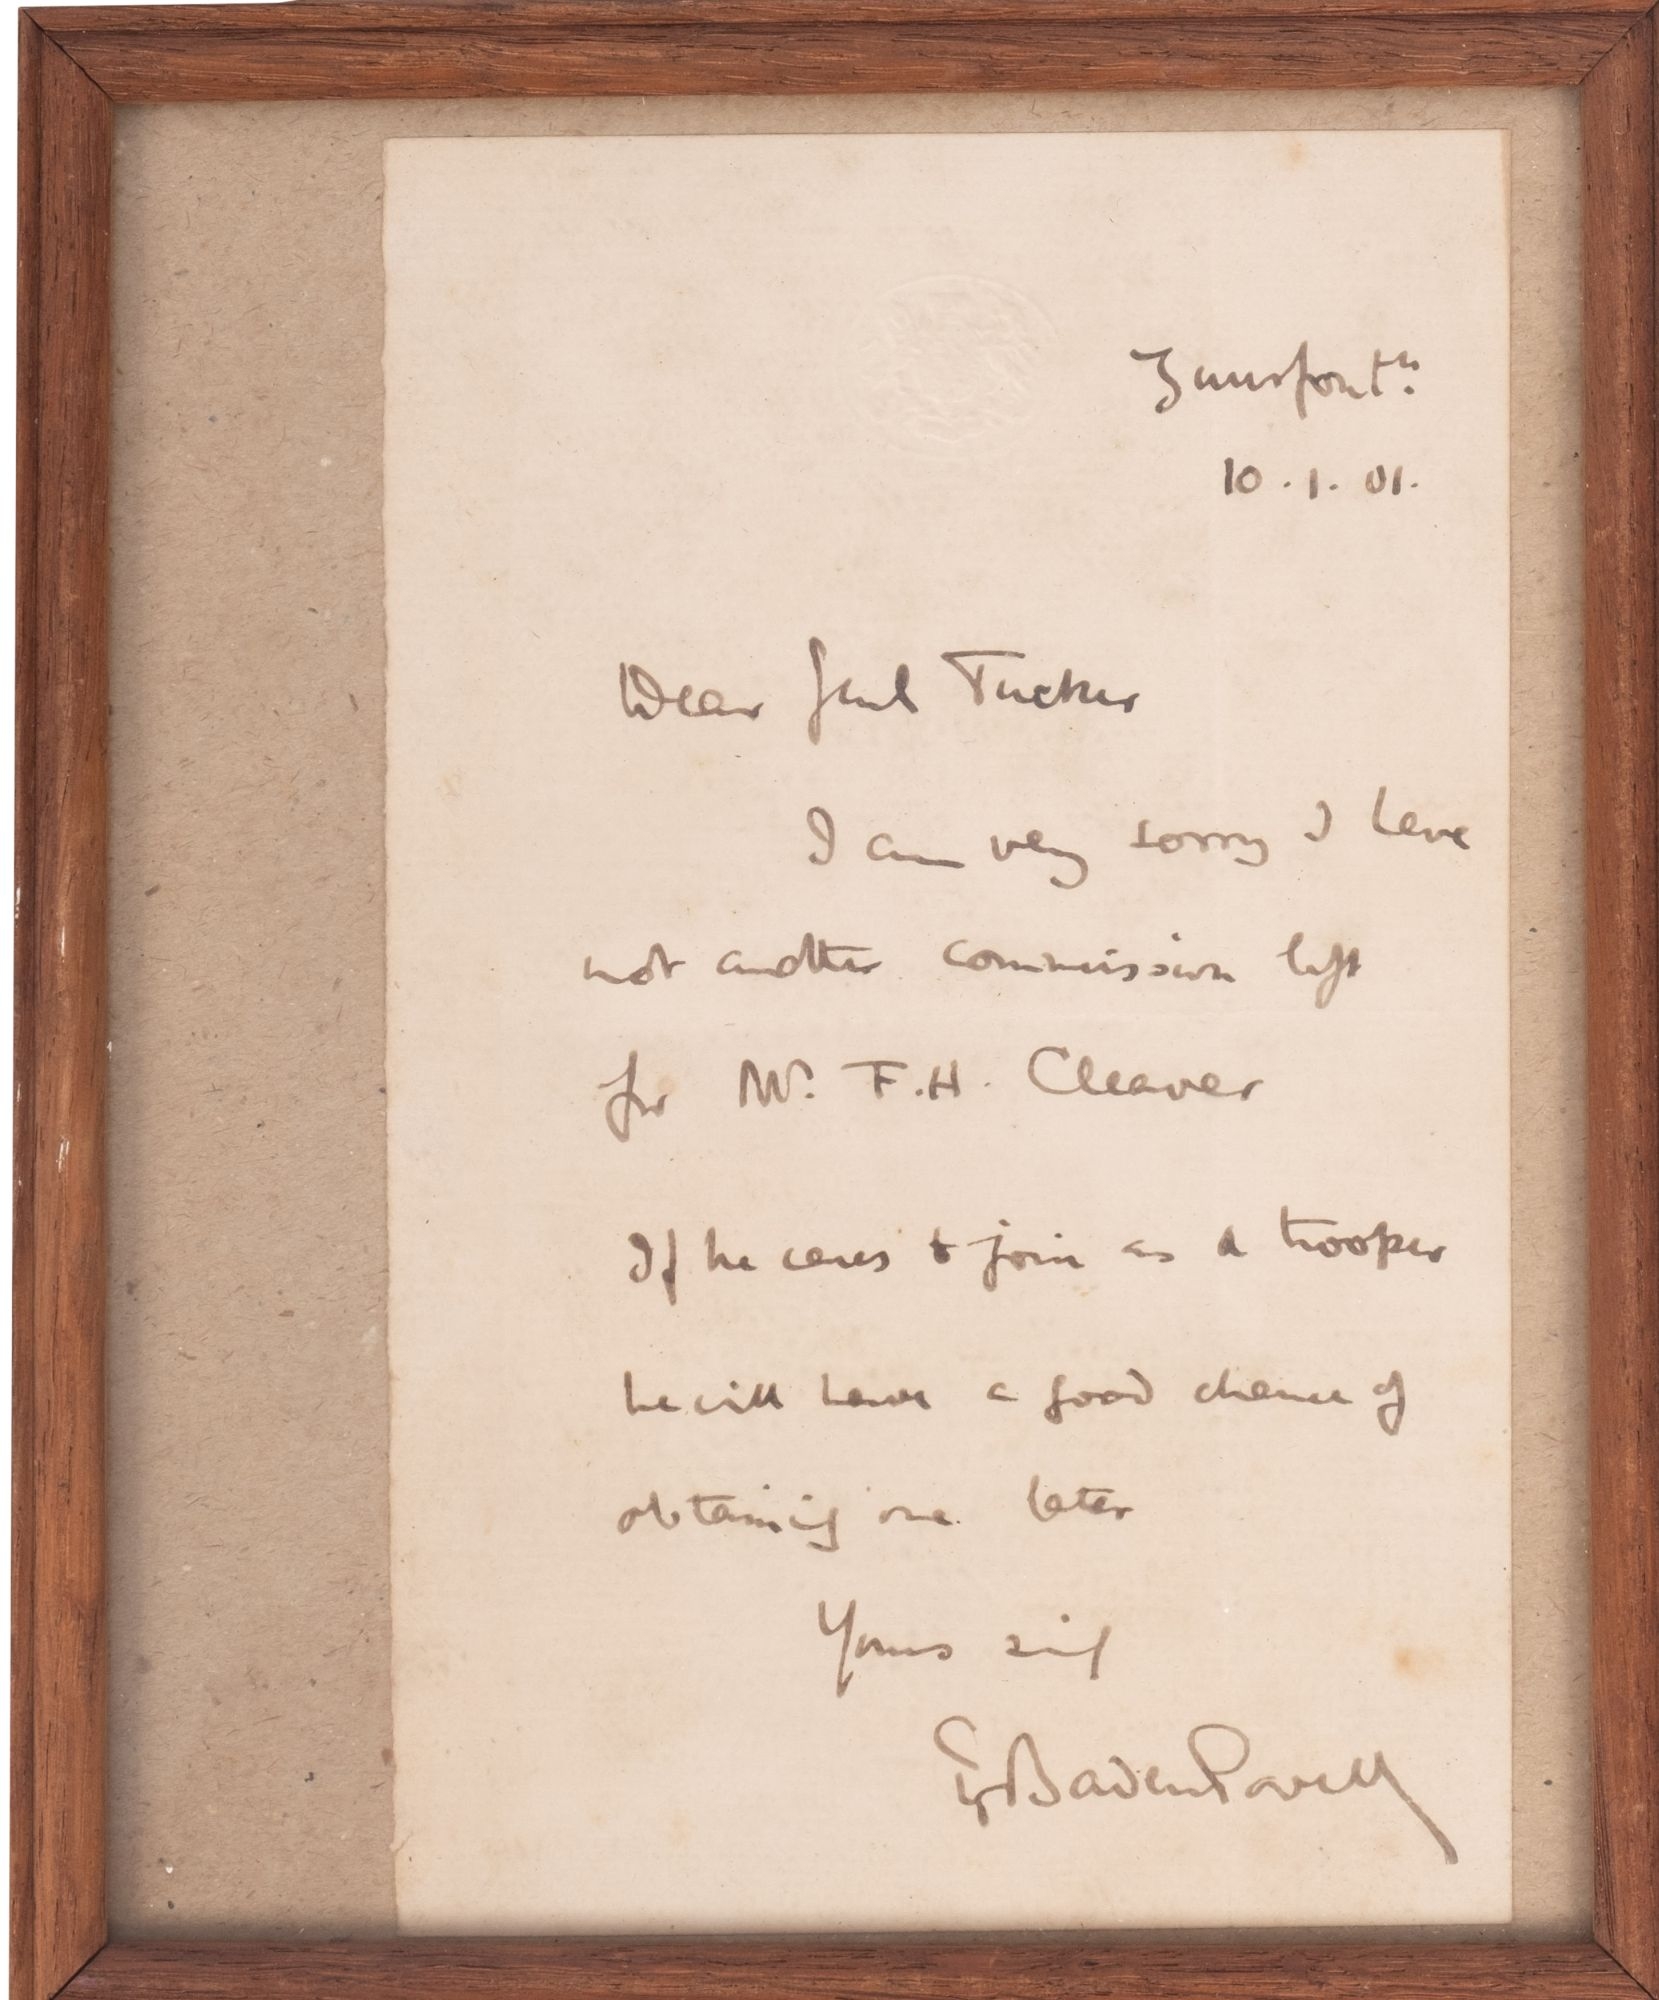 Zuurfontn.
10.1.01.
Dear Genl Tucker
I am very sorry I have
not another commission left
for Mr. F.H. Cleaver
If he cares to join as a trooper
he will have a good chance of
obtaining one later
Yours sincy
BadenPowell